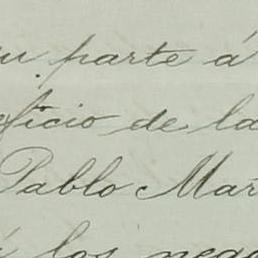 su parte á
oficio de la
Pablo Mar
á los nego